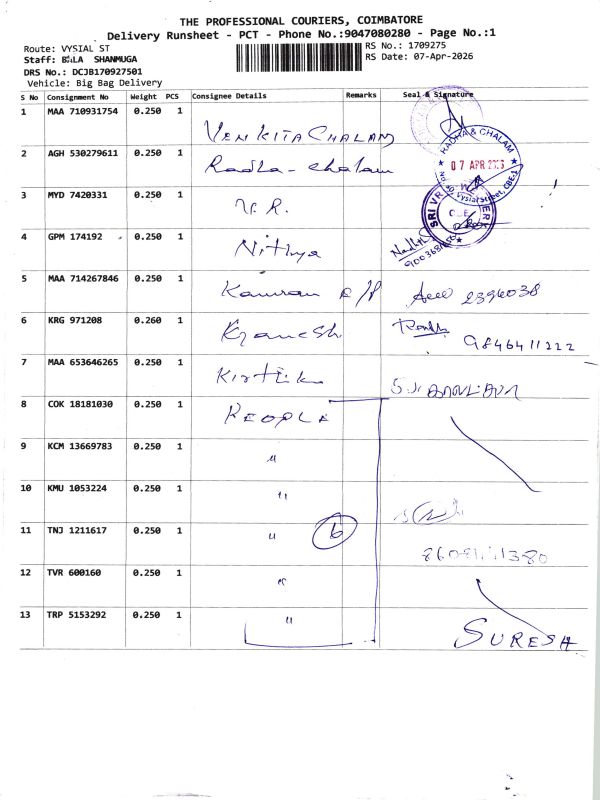 THE PROFESSIONAL COURIERS, COIMBATORE
Delivery Runsheet - PCT - Phone No.:9047080280 - Page No.:1
Route: VYSIAL ST
RS No.: 1709275
Staff: BALA SHANMUGA
RS Date: 07-Apr-2026
DRS No.: DCJB170927501
Vehicle: Big Bag Delivery
S No Consignment No Weight PCS Consignee Details Remarks Seal & Signature
1 MAA 710931754 0.250 1 VENKITACHALAM
2 AGH 530279611 0.250 1 Radha-chalam RADHA & CHALAM 07 APR Vysial Street, CBE-1
3 MYD 7420331 0.250 1 V.R. SRI VR
4 GPM 174192 0.250 1 Nithya
5 MAA 714267846 0.250 1 2394038
6 KRG 971208 0.260 1 Ganesh 9846411222
7 MAA 653646265 0.250 1 Kirthik
8 COK 18181030 0.250 1 PEOPLE
9 KCM 13669783 0.250 1 "
10 KMU 1053224 0.250 1 "
11 TNJ 1211617 0.250 1 " 6
12 TVR 600160 0.250 1 "
13 TRP 5153292 0.250 1 " SURESH